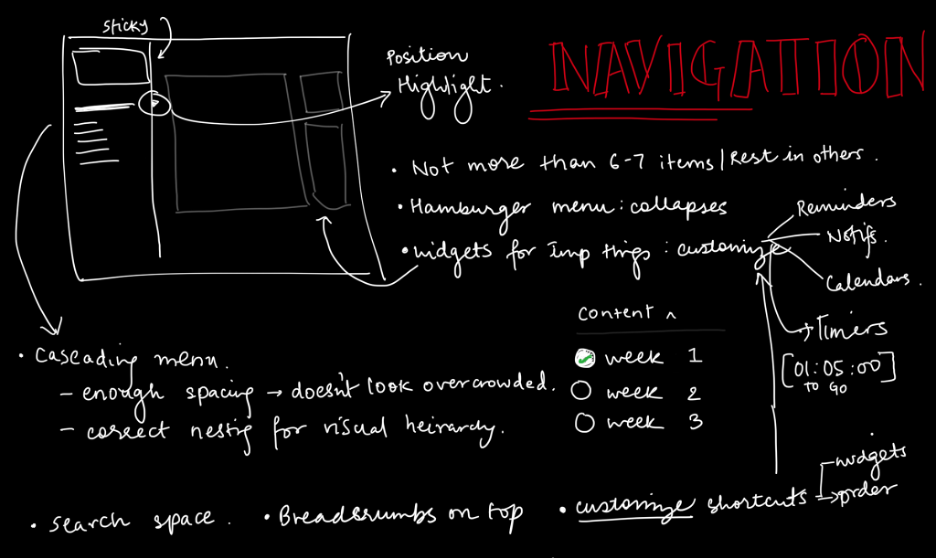 sticky
NAVIGATION
Position
Highlight.
• Not more than 6-7 items/Rest in others.
• Hamburger menu: collapses
• widgets for imp things: customize
Reminders
Notifs.
Calendars.
Timers
[01:05:00]
TO GO
content ^
week 1
week 2
week 3
• Cascading menu.
– enough spacing → doesn't look overcrowded.
– correct nestig for visual heirarchy.
• search space.
• Breadcrumbs on top
• customize shortcuts
widgets
order